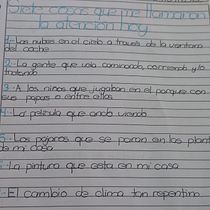 Siete cosas que me llamaron
la atención hoy
1. Las nubes en el cielo a través de la ventana
del coche
2. La gente que veía caminando, corriendo y/o
trotando
3. A los niños que jugaban en el parque con
sus papás o entre ellos
4. La película que ando viendo
5. Los pájaros que se paran en las plantas
de mi casa
6. La pintura que está en mi casa
7. El cambio de clima tan repentino